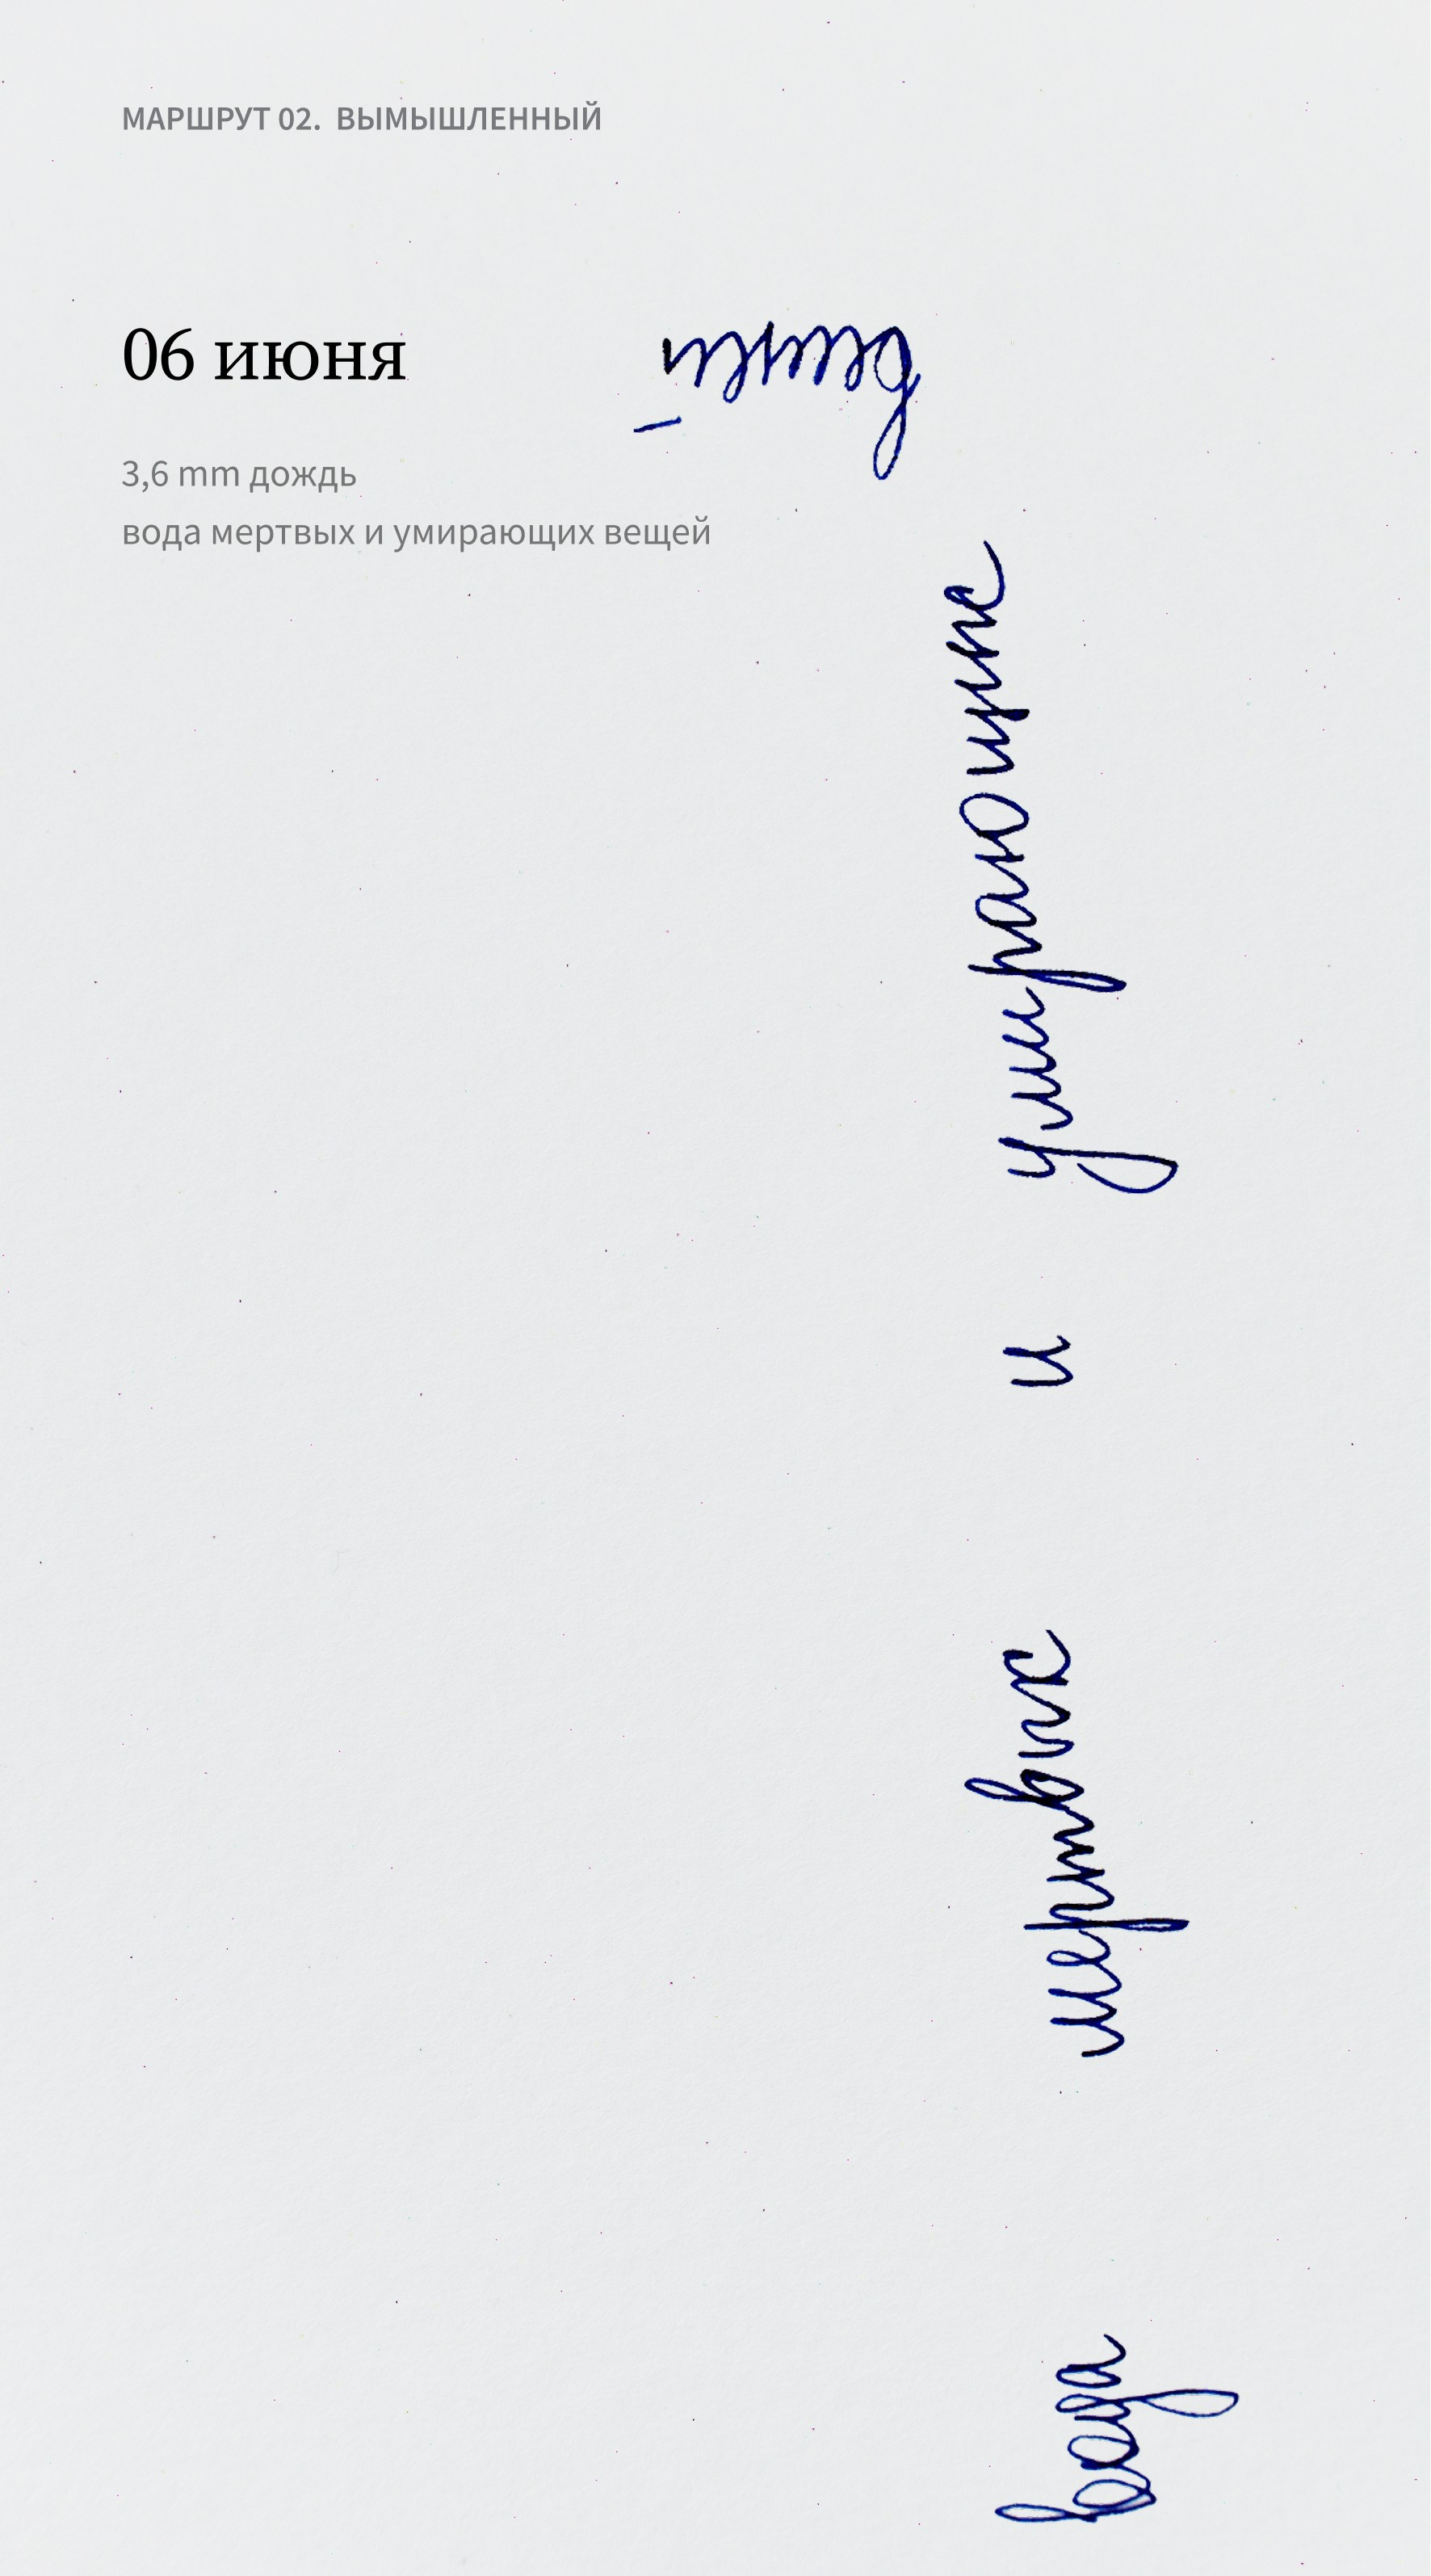 МАРШРУТ 02. ВЫМЫШЛЕННЫЙ
06 июня
3,6 mm дождь
вода мертвых и умирающих вещей
вода мертвых и умирающих
вещей